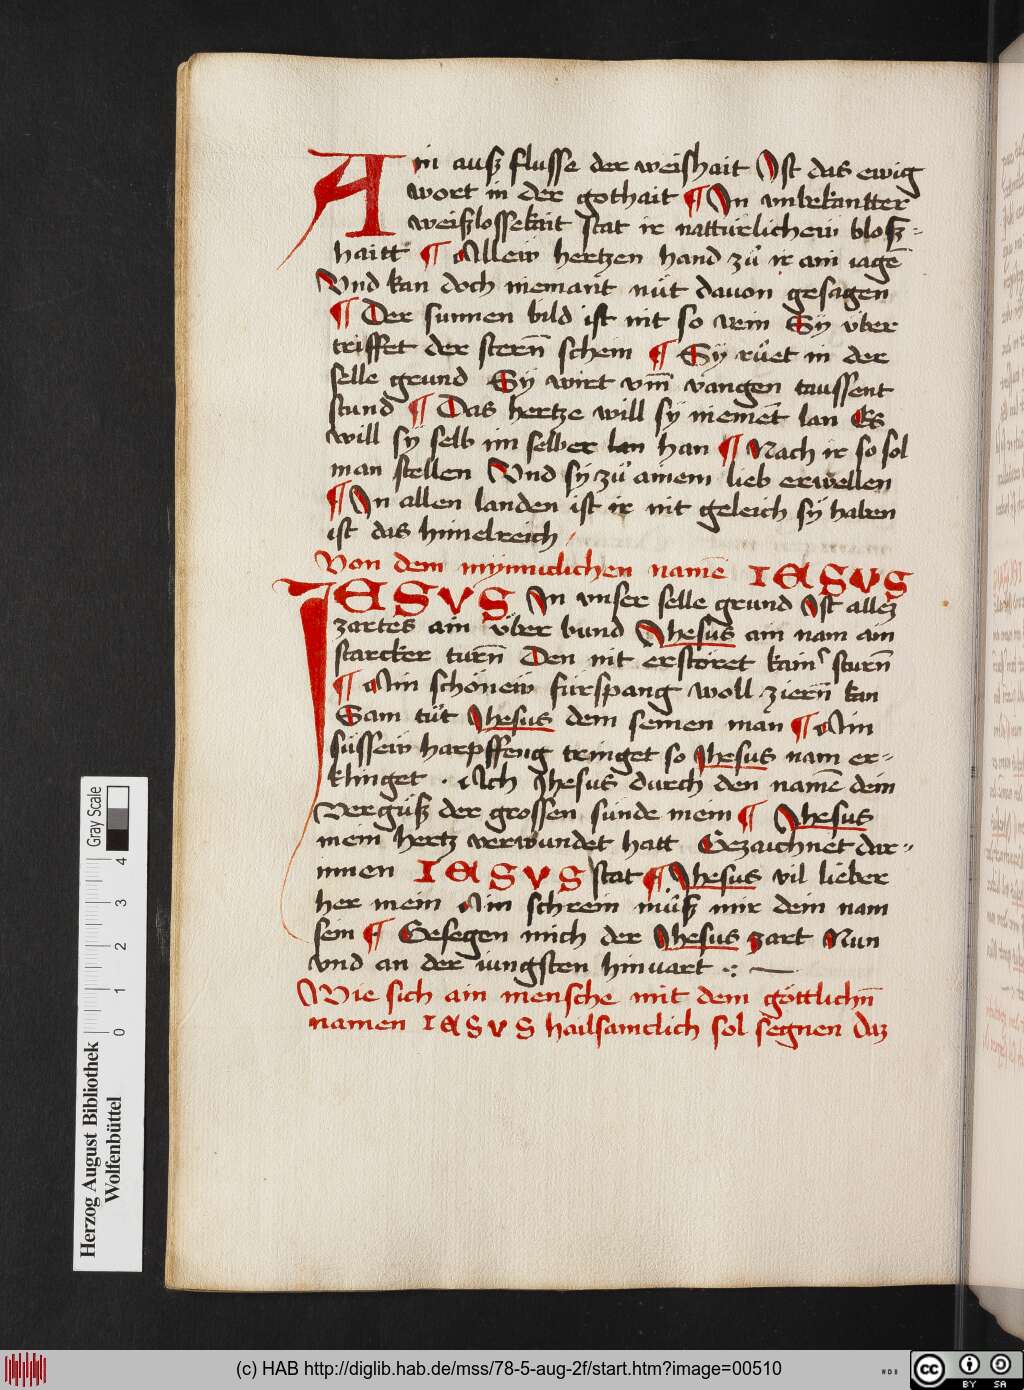 Ain ausz flusse der weishait Ist das ewig
wort in der gothait ¶ In vnbekantter
weiszlossekait stat ir nattürlicheiu blosz-
haitt ¶ Alleiu hertzen hand zů ir ain iagē
Vnd kan doch niemant nüt dauon gesagen
¶ Der sunnen bild ist nit so rein Sy über
triffet der stern̄ schein ¶ Sy růet in der
selle grund Sy wirt vm̄ vangen taussent
stund ¶ Das hertze will sy niemēt lan Es
will sy selb im selber lan han ¶ Nach ir so sol
man stellen Vnd sy zů ainem lieb erwellen
¶ In allen landen ist ir nit geleich sy haben
ist das himelreich
Von dem mynniclichen namē IESUS
IESUS In vnser selle grund Ist allez
zartes ain über bund Jhesus ain nam ain
starcker turn̄ Den nit erstöret kain' sturn̄
¶ Ain schöneiu fürspang woll ziern̄ kan
Sam tüt Jhesus dem seinen man ¶ Ain
süsseiu harpffeng tringet so Jhesus nam er-
klinget . Ach Jhesus durch den namē dein
Vergüsz der grossen sünde mein ¶ Jhesus
mein hertz verwundet hatt Gezaichnet dar-
innen IESUS stat ¶ Jhesus vil lieber
her mein Ain schrein můsz mir dein nam
sein ¶ Gesegen mich der Jhesus zart Nun
vnd an der iungsten hinuart
Wie sich ain mensche mit dem göttlichn̄
namen IESUS hailsamclich sol segnen daz
Herzog August Bibliothek
Wolfenbüttel
Gray Scale
0 1 2 3 4
(c) HAB http://diglib.hab.de/mss/78-5-aug-2f/start.htm?image=00510
cc BY SA